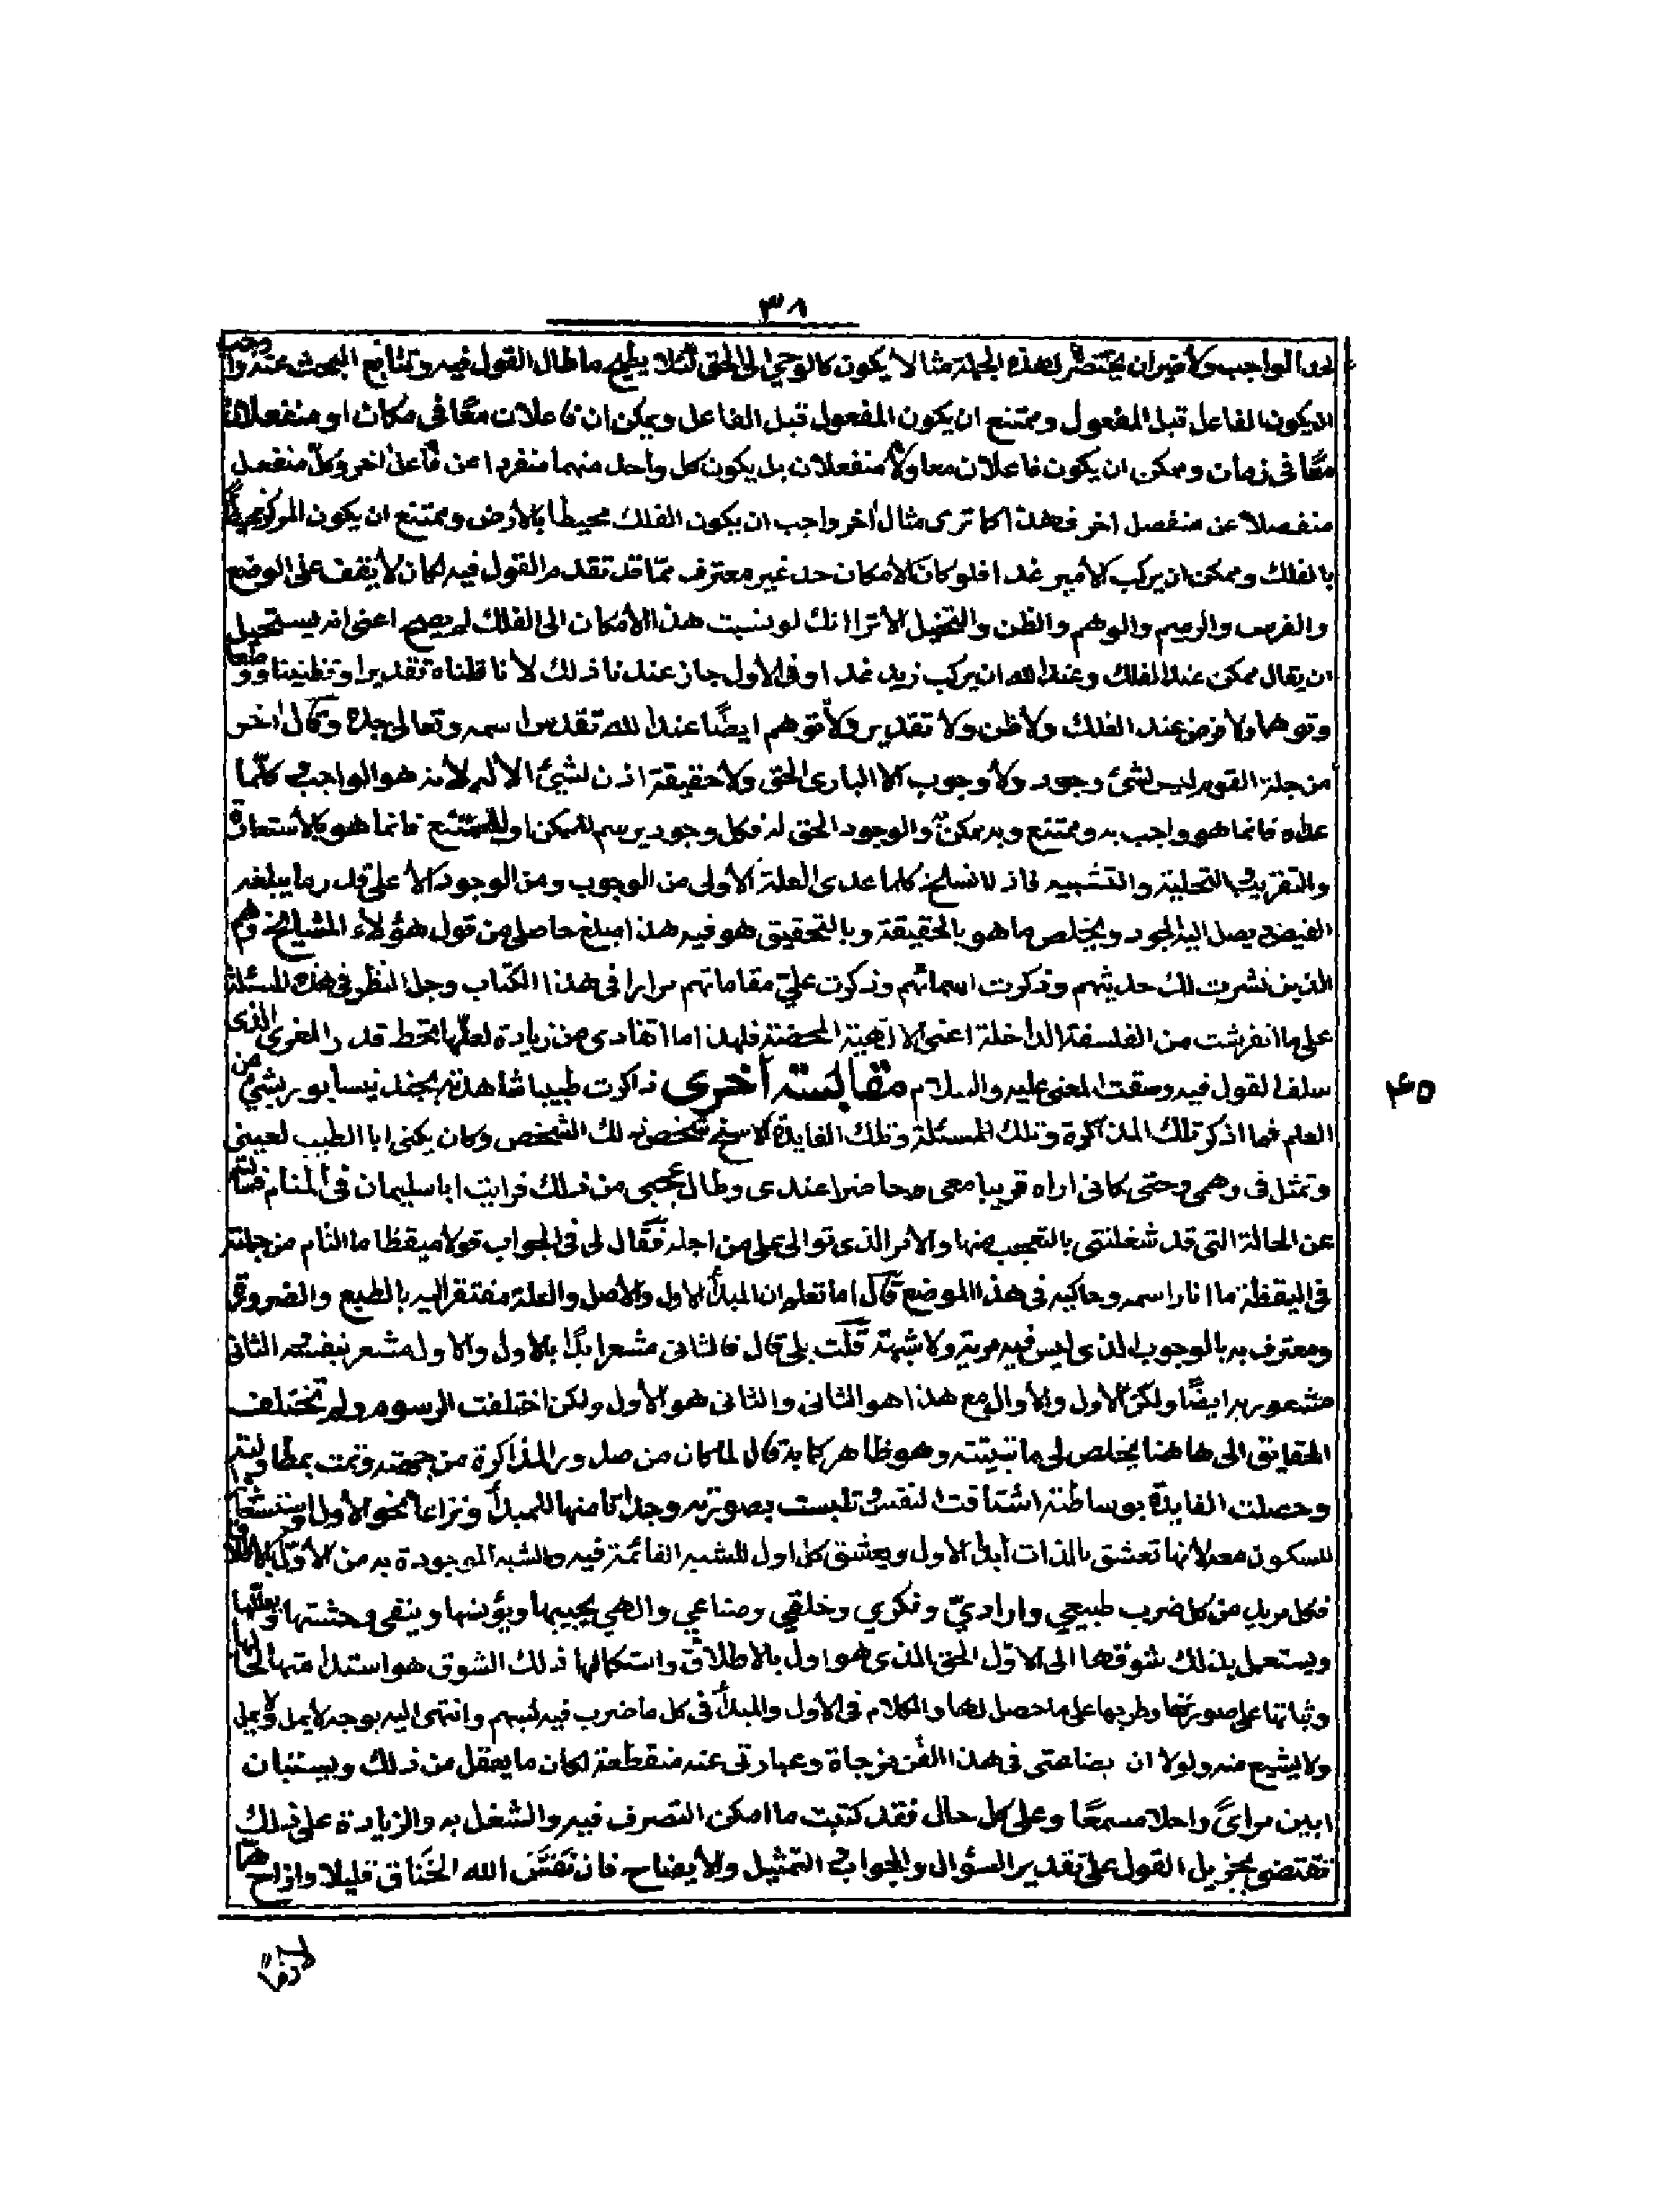 ٣٨
الواجب ولا ضير ان يختصر لهذه الجملة مثالا يكون كالوحي الى الحق لئلا ما طال القول فيه وتتابع البحث عنه واجب
ان يكون الفاعل قبل المفعول وممتنع ان يكون المفعول قبل الفاعل ويمكن ان فاعلان معًا فى مكان او منفعلان
معًا فى زمان وممكن ان يكون فاعلان معا ولا منفعلان بل يكون كل واحد منهما منفردا عن فاعل اخر وكل منفصل
منفصلاً عن منفصل اخر فهذا كما ترى مثال اخر واجب ان يكون الفلك محيطا بالأرض وممتنع ان يكون المركز محيطا
بالفلك وممكن ان يركب الأمير غدا فلو كان الأمكان حد غير معترف ممّا قد تقدم القول فيه لكان لا يقف على الوضع
والفرض والرسم والوهم والظن والتخيل الا ترا انك لو نسبت هذا الأمكان الى الفلك لم يصح اعنى انه يستحيل
ان يقال ممكن عند الفلك وعند الله ان يركب زيد غدا وفى الأول جاز عندنا ذلك لانا قلناه تقديرا وتظنينا ووضعا
وتوهما ولا فرض عند الفلك ولا ظن ولا تقدير ولا توهم ايضًا عند الله تقدس اسمه وتعالى جده وقال اخر
من جلة القوم ليس لشئ وجود ولا وجوب الا البارى الحق ولا حقيقة اذن لشئ الا له لأنه هو الواجب كلّما
عداه فانما هو واجب به وممتنع وبه ممكن والوجود الحق له فكل وجود يرسم للممكن او للممتنع فانما هو بالأستعارة
والتقريب والتحلية والتشبيه فاذ لانسلخ كلما عدى العلة الأولى من الوجوب ومن الوجود الا على قدر ما يبلغه
الفيض يصل اليه الجود ويخلص ما هو بالحقيقة وبالتحقيق هو فيه هذا مبلغ حاصلى من قول هؤلاء المشايخ وهم
الذين نشرت لك حديثهم وذكرت اسمائهم وذكرت على مقاماتهم مرارا فى هذا الكتاب وجل النظر فى هذه المسئلة
على ما انفرشت من الفلسفة الداخلة اعنى الالهية المحضة فلهذا ما اتفادى من زيادة لعلّها تحط قدر المغرى الذى
سلف القول فيه وصفت المعنى عليه والسلام مقابسة أخرى ذاكرت طبيبا شاهدته بجند نيسابور بشئ من
٤٥
العلم فما اذكر تلك المذاكرة وتلك المسئلة وتلك الفايدة الا سنح شخص ذلك الشخص وكان يكنى ابا الطيب لعينى
وتمثل فى وهمى حتى كانى اراه قريبا معى حاضرا عندى وطال عجبى من ذلك فرايت ابا سليمان فى المنام فسألته
عن الحالة التى قد شغلتنى بالتعجب منها والأمر الذى توالى على من اجله فقال لى فى الجواب قولا ميقظا ما التام من جملته
فى اليقظة ما انا راسمه وحاكيه فى هذا الموضع قال اما تعلم ان المبدأ الاول والأصل والعلة مفتقر اليه بالطبع والضرورة
ومعترف به بالوجوب الذى ليس فيه مرية ولا شبهة قلت بلى قال فالثانى مشعر ابدًا بالاول والاول مشعر بنفسه الثانى
مشعور به ايضًا ولكن الاول والأول مع هذا هو الثانى والثانى هو الأول ولكن اختلفت الرسوم ولم تختلف
الحقايق الى هاهنا يخلص لى ما تبينته وهو ظاهر كما به قال لما كان من صدور المذاكرة من جهته وتمت بمطاولته
وحصلت الفايدة بوساطته اشتاقت النفس تلبست بصورته وجدانا منها للمبدأ ونزاعا نحو الأول
للسكون معه لانها تعشق بالذات ابدا الاول ويعشق كل اول للشبه القائمة فيه والشبه الموجودة به من الأول
فكل مريد من كل ضرب طبيعي واراديّ وفكري وخلقي وصناعي والهي يجيبها ويؤنسها وينفى وحشتها
ويستعمل بذلك شوقها الى الاول الحق الذى هو اول بالاطلاق واستكمالها ذلك الشوق هو استدامتها
وثباتها على صورتها وطربها على ما حصل لها والكلام فى الأول والمبدأ فى كل ما ضرب فيه بسهم وانتهى اليه بوجه لا يمل ولا
ولا يشبع منه ولولا ان بضاعتى فى هذا الفن مزجاة وعبارتى عنه منقطعة لكان ما يعقل من ذلك ويستبان
ابين مراىً واحلا مسمعًا وعلى كل حال فقد كتبت ما امكن التصرف فيه والشغل به والزيادة على ذلك
تقتضى تجزيل القول على تقدير السؤال والجواب التمثيل والأيضاح فان نفس الله الخناق قليلا وازاح همّا